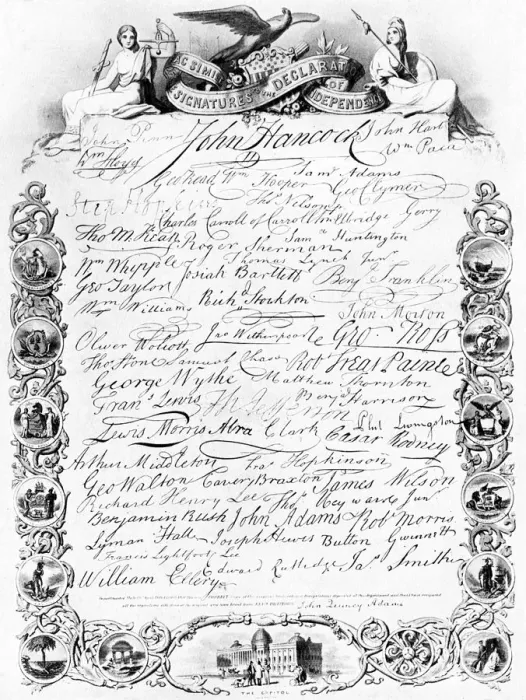 FAC SIMILE
SIGNATURES TO THE DECLARATION
OF INDEPENDENCE
John Penn John Hancock John Hart
Wm Floyd Wm Paca
Geo Read Wm Hooper Saml Adams
Geo Clymer
Step Hopkins Thos Nelson jr
Charles Carroll of Carrollton Elbridge Gerry
Tho M:Kean Roger Sherman Saml Huntington
Wm Whipple Thomas Lynch Junr
Geo Taylor Josiah Bartlett Benj Franklin
Wm Williams Richd Stockton
John Morton
Oliver Wolcott Jno Witherspoon Geo Ross
Thos Stone Samuel Chase Robt Treat Paine
George Wythe Matthew Thornton
Frans Lewis Th Jefferson Benj Harrison
Lewis Morris Abra Clark Phil Livingston
Cæsar Rodney
Arthur Middleton Fras Hopkinson
Geo Walton Carter Braxton James Wilson
Richard Henry Lee Thos Heyward Junr
Benjamin Rush John Adams Robt Morris
Lyman Hall Joseph Hewes Button Gwinnett
Francis Lightfoot Lee
William Ellery Edward Rutledge Jas Smith
John Quincy Adams
THE CAPITOL